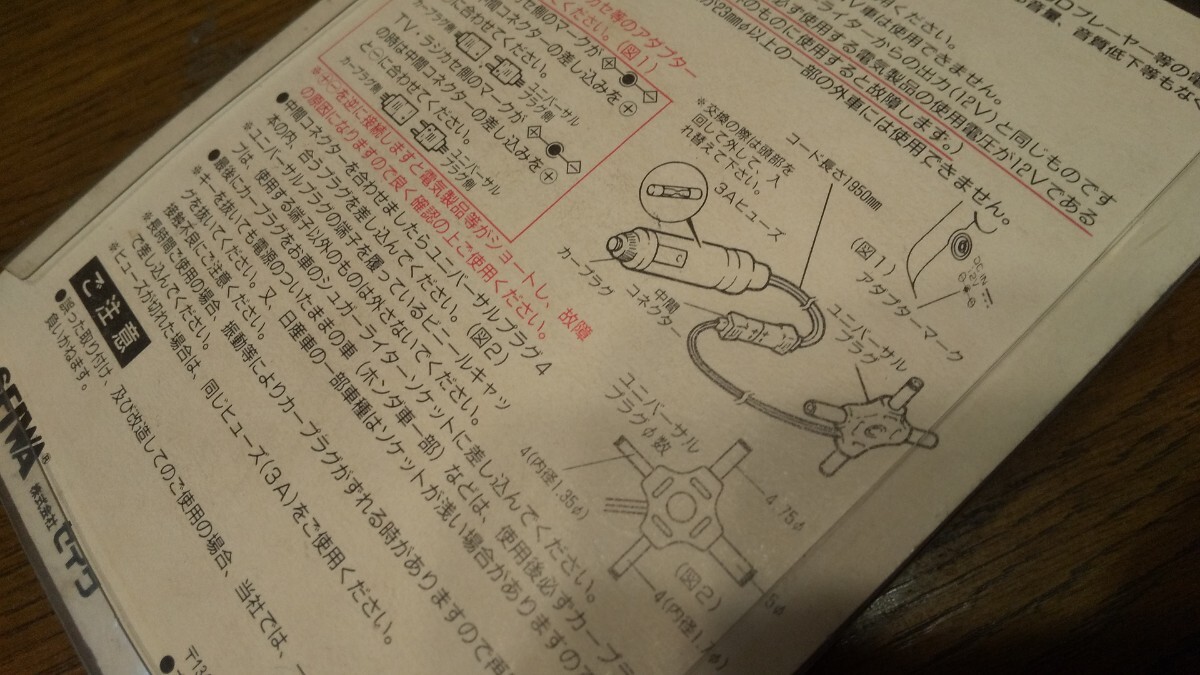 Dプレーヤー等の電
音量、音質低下等もなく
用ください。
V車は使用できません。
イターからの出力(12V)と同じものです
必ず使用する電気製品の使用電圧が12Vである
のものに使用すると故障します。)
が23mmφ以上の一部の外車には使用できません。
カセ等のアダプター
ください。(図1)
セ側のマークが
中間コネクターの差し込みを⊕
に合わせてください。
カープラグ側
ユニバーサル
プラグ側
TV・ラジカセ側のマークが
の時は中間コネクターの差し込みを⊕
と⊖に合わせてください。
カープラグ側
ユニバーサル
プラグ側
※⊕⊖を逆に接続しますと電気製品等がショートし、故障
の原因になりますので良く確認の上ご使用ください。
●中間コネクターを合わせましたらユニバーサルプラグ4
本の内、合うプラグを差し込んでください。(図2)
※ユニバーサルプラグの端子を覆っているビニールキャッ
プは、使用する端子以外のものは外さないでください。
●最後にカープラグをお車のシュガーライターソケットに差し込んでください。
※キーを抜いても電源のついたままの車(ホンダ車一部)などは、使用後必ずカープラ
グを抜いてください。又、日産車の一部車種はソケットが浅い場合がありますので
接触不良にご注意ください。
※長時間ご使用の場合、振動等によりカープラグがずれる時がありますので再
で差し込んでください。
※ヒューズが切れた場合は、同じヒューズ(3A)をご使用ください。
ご注意
●誤った取り付け、及び改造してのご使用の場合、当社では、一
負いかねます。
SEIWA®
株式会社セイワ
〒13
※交換の際は頭部を
回して外して、入
れ替えて下さい。
3Aヒューズ
コード長さ1950mm
カープラグ
中間
コネクター
(図1)
アダプターマーク
DC IN
12V
ユニバーサル
プラグ
ユニバーサル
プラグφ数
4(内径1.35φ)
4.75φ
(図2)
5φ
4(内径1.7φ)